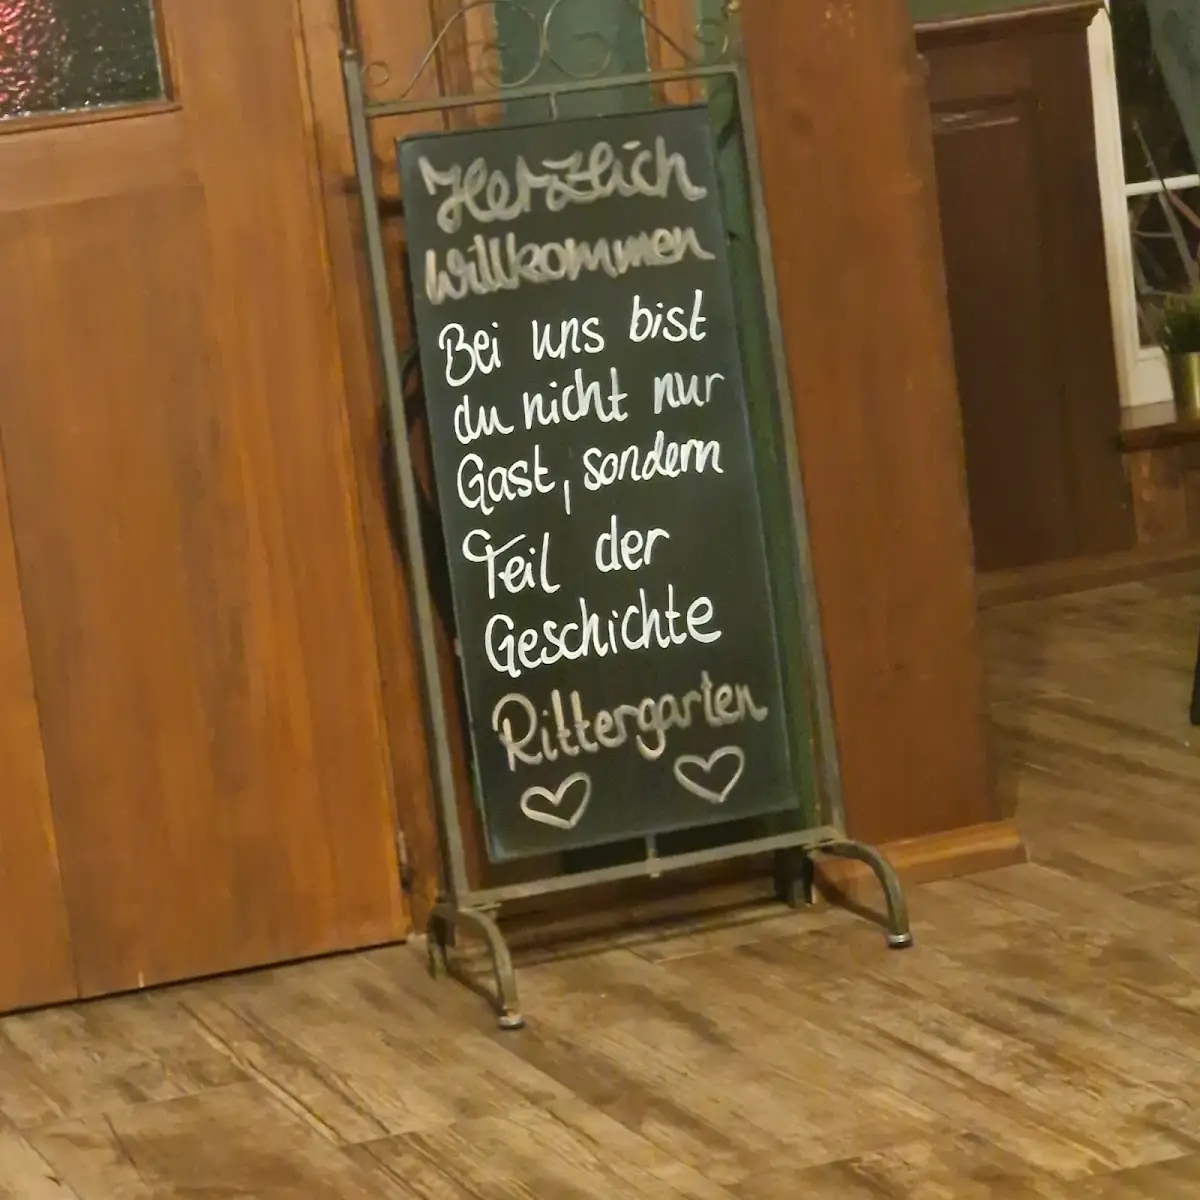 Herzlich
willkommen
Bei uns bist
du nicht nur
Gast, sondern
Teil der
Geschichte
Rittergarten